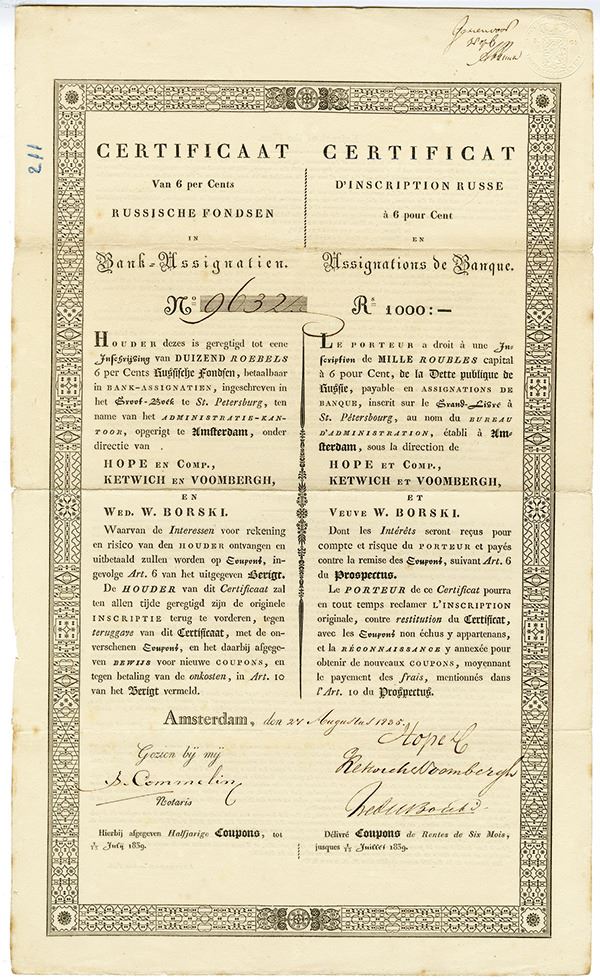 211
CERTIFICAAT
Van 6 per Cents
RUSSISCHE FONDSEN
IN
Bank-Assignatien.
CERTIFICAT
D'INSCRIPTION RUSSE
à 6 pour Cent
EN
Assignations de Banque.
No 9632
Rs 1000:—
HOUDER dezes is geregtigd tot eene
Inschrijving van DUIZEND ROEBELS
6 per Cents Russische Fondsen, betaalbaar
in BANK-ASSIGNATIEN, ingeschreven in
het Groot-Boek te St. Petersburg, ten
name van het ADMINISTRATIE-KAN-
TOOR, opgerigt te Amsterdam, onder
directie van .
HOPE EN COMP.,
KETWICH EN VOOMBERGH,
EN
WED. W. BORSKI.
Waarvan de Interessen voor rekening
en risico van den HOUDER ontvangen en
uitbetaald zullen worden op Coupons, in-
gevolge Art. 6 van het uitgegeven Berigt.
De HOUDER van dit Certificaat zal
ten allen tijde geregtigd zijn de originele
INSCRIPTIE terug te vorderen, tegen
teruggave van dit Certificaat, met de on-
verschenen Coupons, en het daarbij afgege-
ven BEWIJS voor nieuwe COUPONS, en
tegen betaling van de onkosten, in Art. 10
van het Berigt vermeld.
LE PORTEUR a droit à une In-
scription de MILLE ROUBLES capital
à 6 pour Cent, de la Dette publique de
Russie, payable en ASSIGNATIONS DE
BANQUE, inscrit sur le Grand-Livre à
St. Pétersbourg, au nom du BUREAU
D'ADMINISTRATION, établi à Am-
sterdam, sous la direction de
HOPE ET COMP.,
KETWICH ET VOOMBERGH,
ET
VEUVE W. BORSKI.
Dont les Intérêts seront reçus pour
compte et risque du PORTEUR et payés
contre la remise des Coupons, suivant Art. 6
du Prospectus.
Le PORTEUR de ce Certificat pourra
en tout temps reclamer L'INSCRIPTION
originale, contre restitution du Certificat,
avec les Coupons non échus y appartenans,
et la RÉCONNAISSANCE y annexée pour
obtenir de nouveaux COUPONS, moyennant
le payement des frais, mentionnés dans
l'Art. 10 du Prospectus.
Amsterdam, den 24 Augustus 1835.
Gezien bij mij
Commelin
Notaris
Hope &
Ketwich & Voombergh
Wed W Borski
Hierbij afgegeven Halfjarige Coupons, tot
1/13 Julij 1839.
Délivré Coupons de Rentes de Six Mois,
jusques 1/13 Juillet 1839.